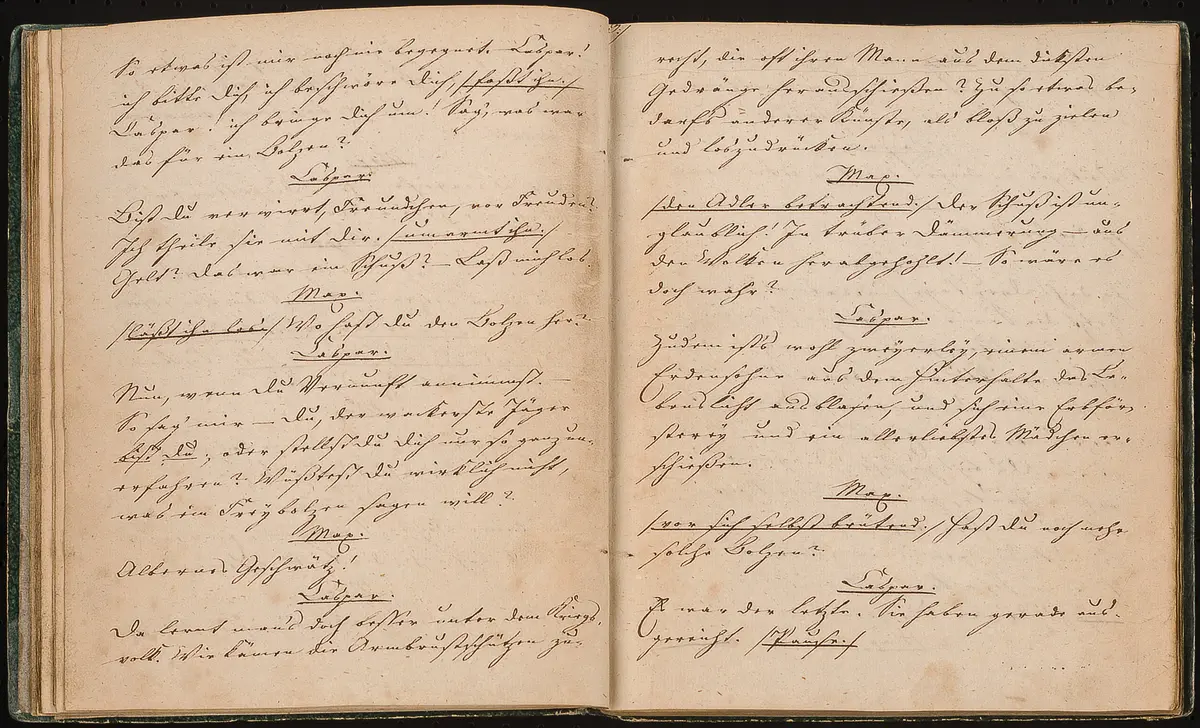 So etwas ist mir noch nie begegnet. Caspar!
ich bitte Dich, ich beschwöre Dich, /:faßt ihn:/
Caspar! ich bringe Dich um! Sag, was war
das für ein Bolzen?
Caspar.
Bist Du verwirrt, Freundchen, vor Freuden?
Ich theile sie mit dir. /:umarmt ihn:/
Gelt? das war ein Schuß? – Laß mich los.
Max.
/:läßt ihn los:/ Wo hast Du den Bolzen her?
Caspar.
Nun, wenn Du Vernunft annimmst. –
So sag' mir – Du, der wackerste Jäger
bist Du, oder stellst Du Dich nur so ganz un-
erfahren? Wüßtest Du wirklich nicht,
was ein Freybolzen sagen will?
Max.
Albernes Geschwätz!
Caspar.
Da lernt man's doch besser unter dem Kriegs-
volk. Wie kämen die Armbrustschützen zu-
recht, die oft ihren Mann aus dem dicksten
Gedränge herausschießen? Zu so etwas be-
darfs anderer Künste, als bloß zu zielen
und loszudrücken.
Max.
/:den Adler betrachtend:/ Der Schuß ist un-
glaublich! In trüber Dämmerung – aus
den Wolken herabgehohlt! – So wäre es
doch wahr?
Caspar.
Zudem ist's wohl zweyerley, einem armen
Erdensohne aus dem Hinterhalte das Le-
benslicht ausblasen, und sich eine Erbför-
sterey und ein allerliebstes Mädchen er-
schießen.
Max.
/:vor sich selbst brütend:/ Hast Du noch mehr
solche Bolzen?
Caspar.
Es war der letzte. Sie haben gerade aus-
gereicht. /:Pause:/